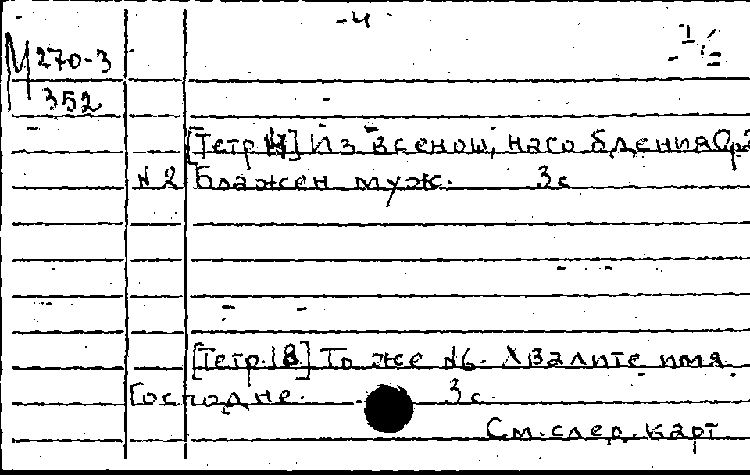 -4-
М 270-3
352
[Тетр ] Из всенощ, ного бдения Ор
N 2 Блажен муж. 3с
[Тетр. 18] То же N6. Хвалите имя
Господне. 3с
См. след. карт